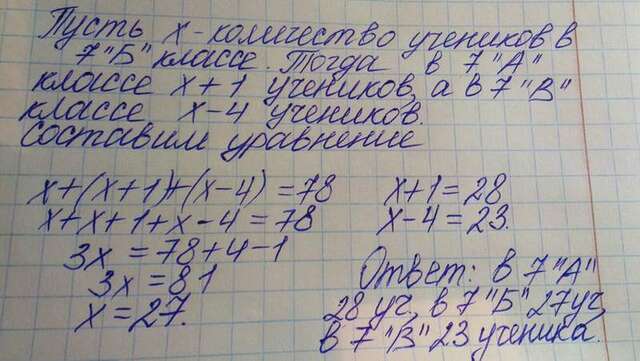 Пусть х - количество учеников в
7 "Б" классе. Тогда в 7 "А"
классе х+1 учеников, а в 7 "В"
классе х-4 учеников.
Составим уравнение
х+(х+1)+(х-4)=78
х+х+1+х-4=78
3х=78+4-1
3х=81
х=27.
х+1=28
х-4=23.
Ответ: в 7 "А"
28 уч, в 7 "Б" 27 уч,
в 7 "В" 23 ученика.